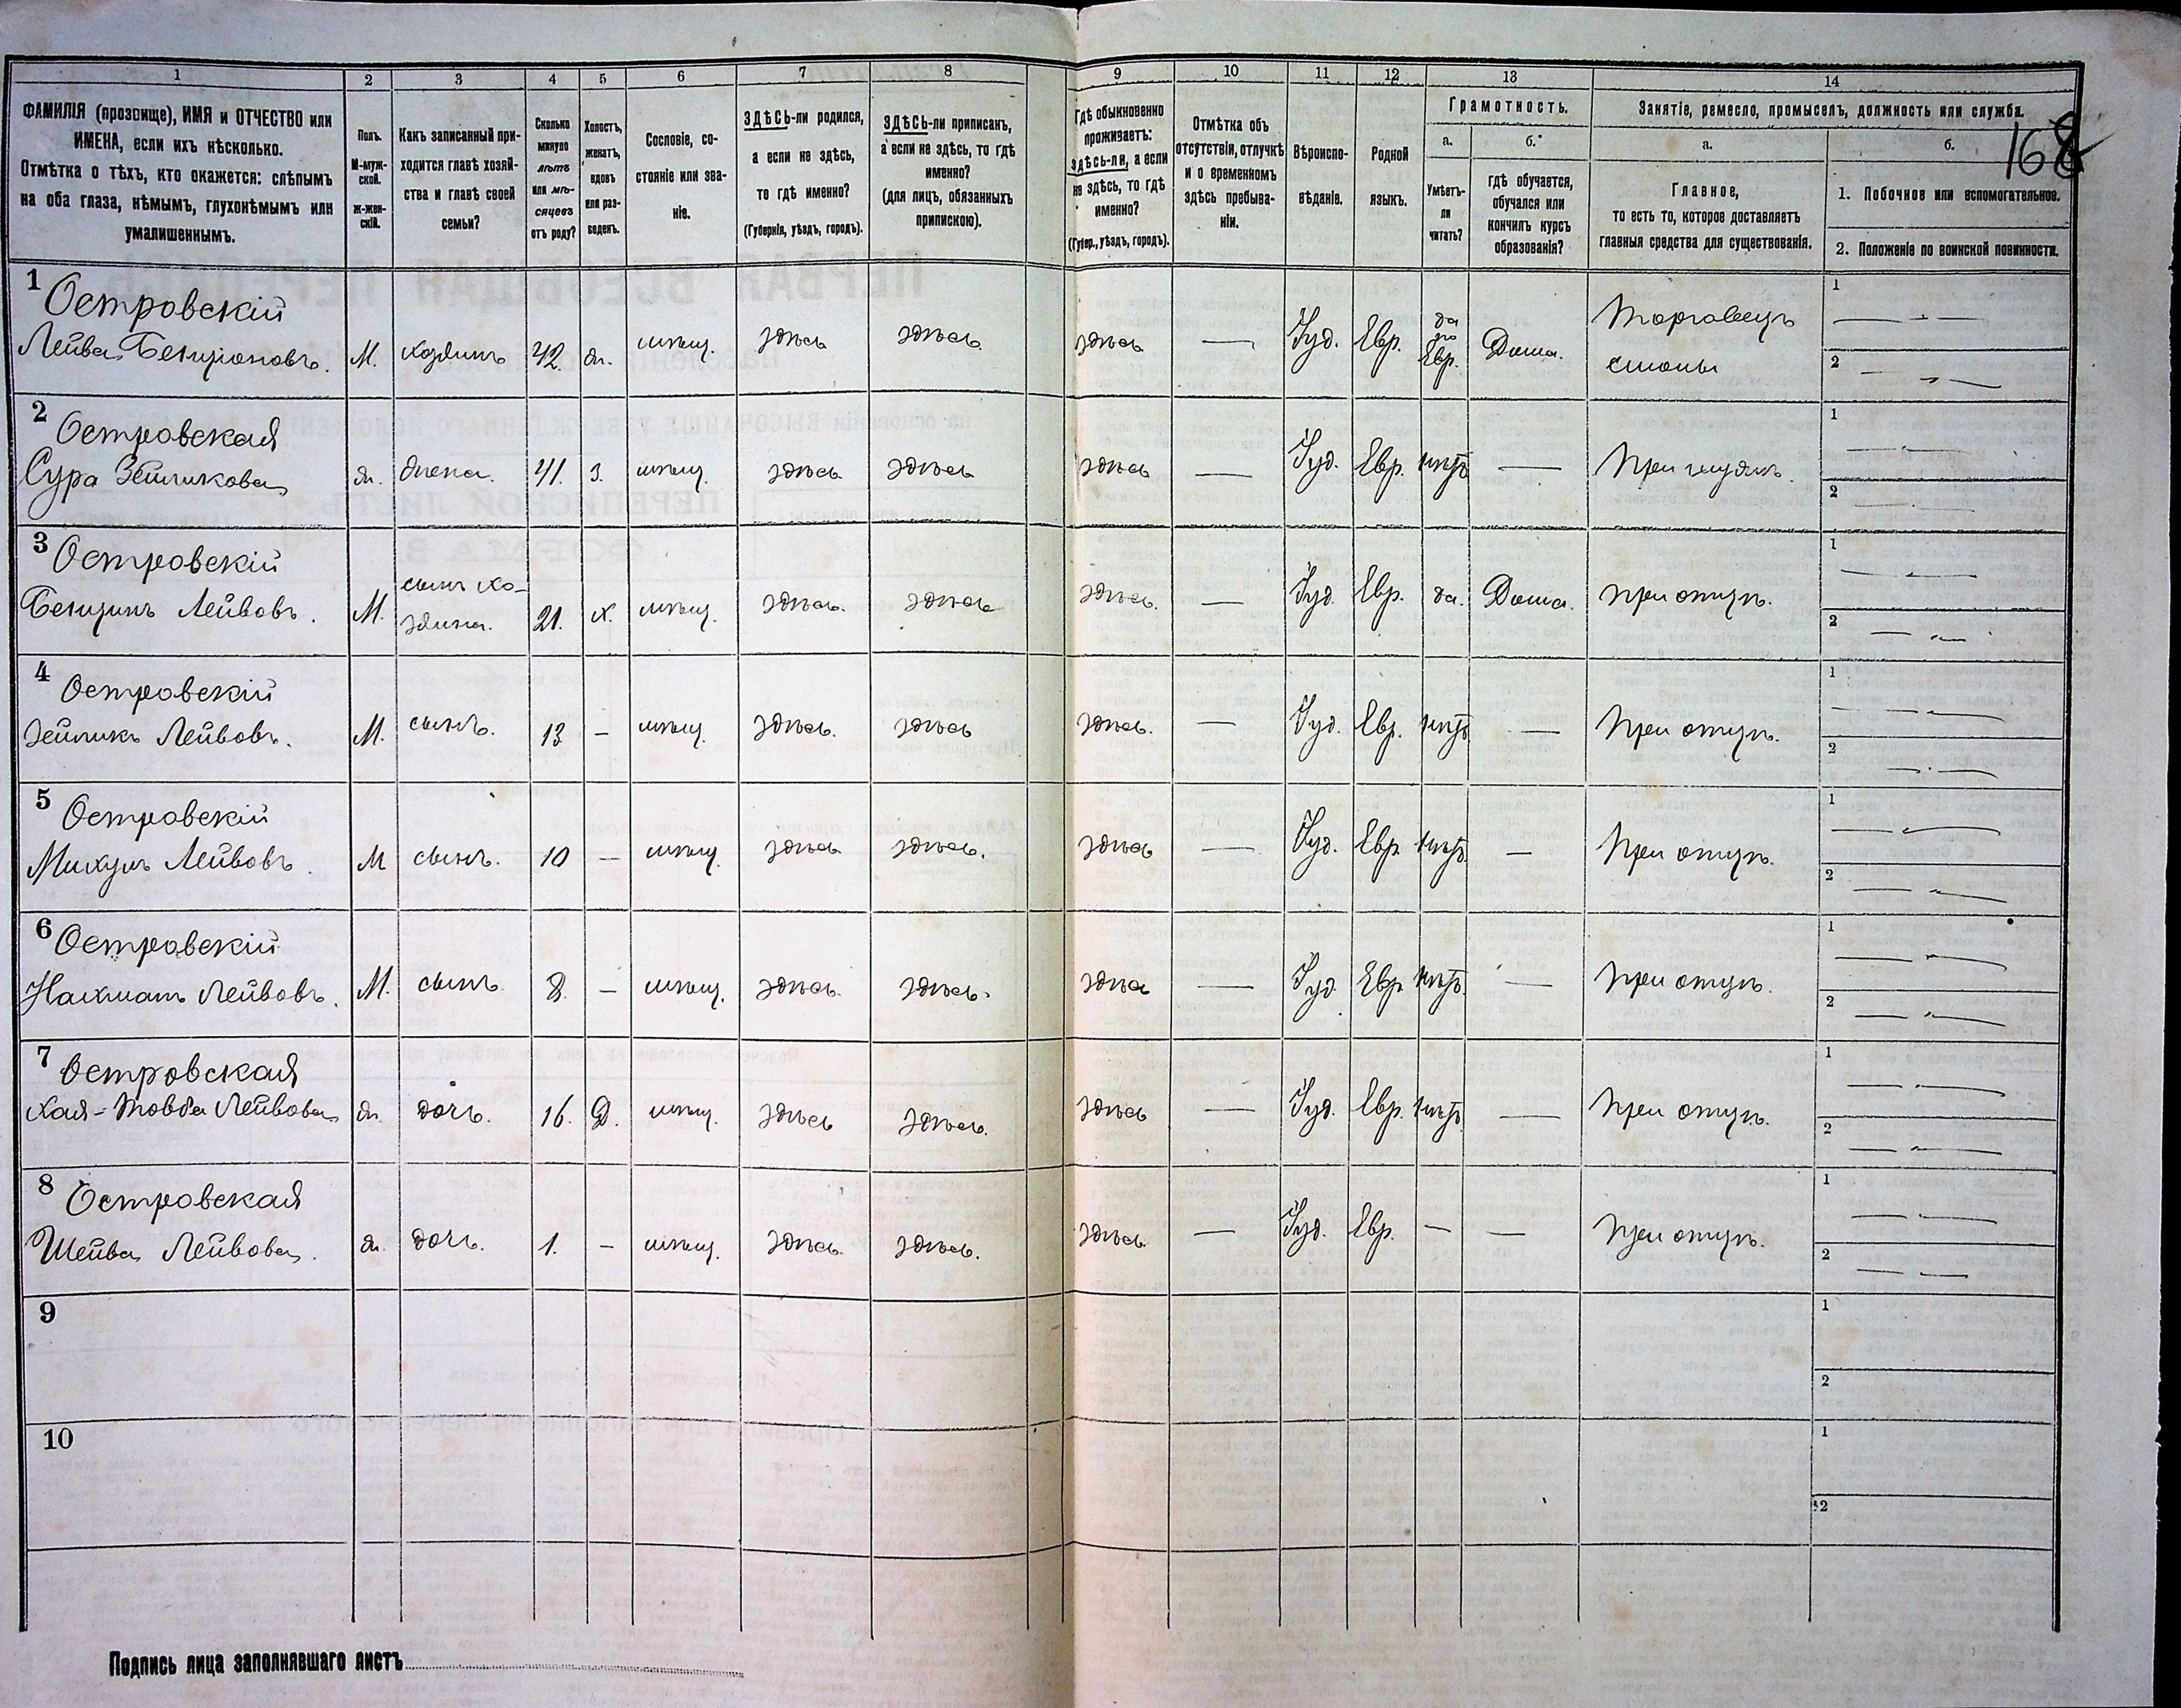 1 2 3 4 5 6 7 8 9 10 11 12 13 14
ФАМИЛІЯ (прозвище), ИМЯ и ОТЧЕСТВО или
ИМЕНА, если ихъ нѣсколько.
Отмѣтка о тѣхъ, кто окажется: слѣпымъ
на оба глаза, нѣмымъ, глухонѣмымъ или
умалишеннымъ.
Полъ.
М-муж-
ской.
Ж-жен-
скій.
Какъ записанный при-
ходится главѣ хозяй-
ства и главѣ своей
семьи?
Сколько
минуло
лѣтъ
или мѣ-
сяцевъ
отъ роду?
Холостъ,
женатъ,
вдовъ
или раз-
веденъ.
Сословіе, со-
стояніе или зва-
ніе.
ЗДѢСЬ-ли родился,
а если не здѣсь,
то гдѣ именно?
(Губернія, уѣздъ, городъ).
ЗДѢСЬ-ли приписанъ,
а если не здѣсь, то гдѣ
именно?
(для лицъ, обязанныхъ
припискою).
Гдѣ обыкновенно
проживаетъ:
здѣсь-ли, а если
не здѣсь, то гдѣ
именно?
(Губер., уѣздъ, городъ).
Отмѣтка объ
отсутствіи, отлучкѣ
и о временномъ
здѣсь пребыва-
ніи.
Вѣроиспо-
вѣданіе.
Родной
языкъ.
Грамотность.
а.
Умѣетъ-
ли
читать?
б.
гдѣ обучается,
обучался или
кончилъ курсъ
образованія?
Занятіе, ремесло, промыселъ, должность или служба.
168
а.
Главное,
то есть то, которое доставляетъ
главныя средства для существованія.
б.
1. Побочное или вспомогательное.
2. Положеніе по воинской повинности.
1 Островскій
Лейба Бенціоновъ. М. хозяинъ 42. ж. мѣщ. здѣсь здѣсь здѣсь — Іуд. Евр. да по Евр. Дома. Торговецъ 1 — 2 —
2 Островская
Сура Зейликова ж. жена. 41. З. мѣщ. здѣсь здѣсь здѣсь — Іуд. Евр. нѣтъ — При мужѣ. 1 — 2 —
3 Островскій
Бенціинъ Лейбовъ. М. сынъ хо-
зяина. 21. Х. мѣщ. здѣсь. здѣсь здѣсь. — Іуд. Евр. да. Дома. При отцѣ. 1 — 2 —
4 Островскій
Зейликъ Лейбовъ. М. сынъ. 13 — мѣщ. здѣсь. здѣсь здѣсь. — Іуд. Евр. нѣтъ — При отцѣ. 1 — 2 —
5 Островскій
Михулъ Лейбовъ. М сынъ. 10 — мѣщ. здѣсь здѣсь. здѣсь — Іуд. Евр. нѣтъ — При отцѣ. 1 — 2 —
6 Островскій
Нахманъ Лейбовъ. М. сынъ 8. — мѣщ. здѣсь. здѣсь. здѣсь — Іуд Евр. нѣтъ — При отцѣ. 1 — 2 —
7 Островская
Хая-Товба Лейбова ж. дочь. 16. Д. мѣщ. здѣсь здѣсь. здѣсь — Іуд. Евр. нѣтъ — При отцѣ. 1 — 2 —
8 Островская
Шейва Лейбова. ж. дочь. 1. — мѣщ. здѣсь. здѣсь. здѣсь. — Іуд. Евр. — — При отцѣ. 1 — 2 —
9 1 2
10 1 2
Подпись лица заполнявшаго листъ